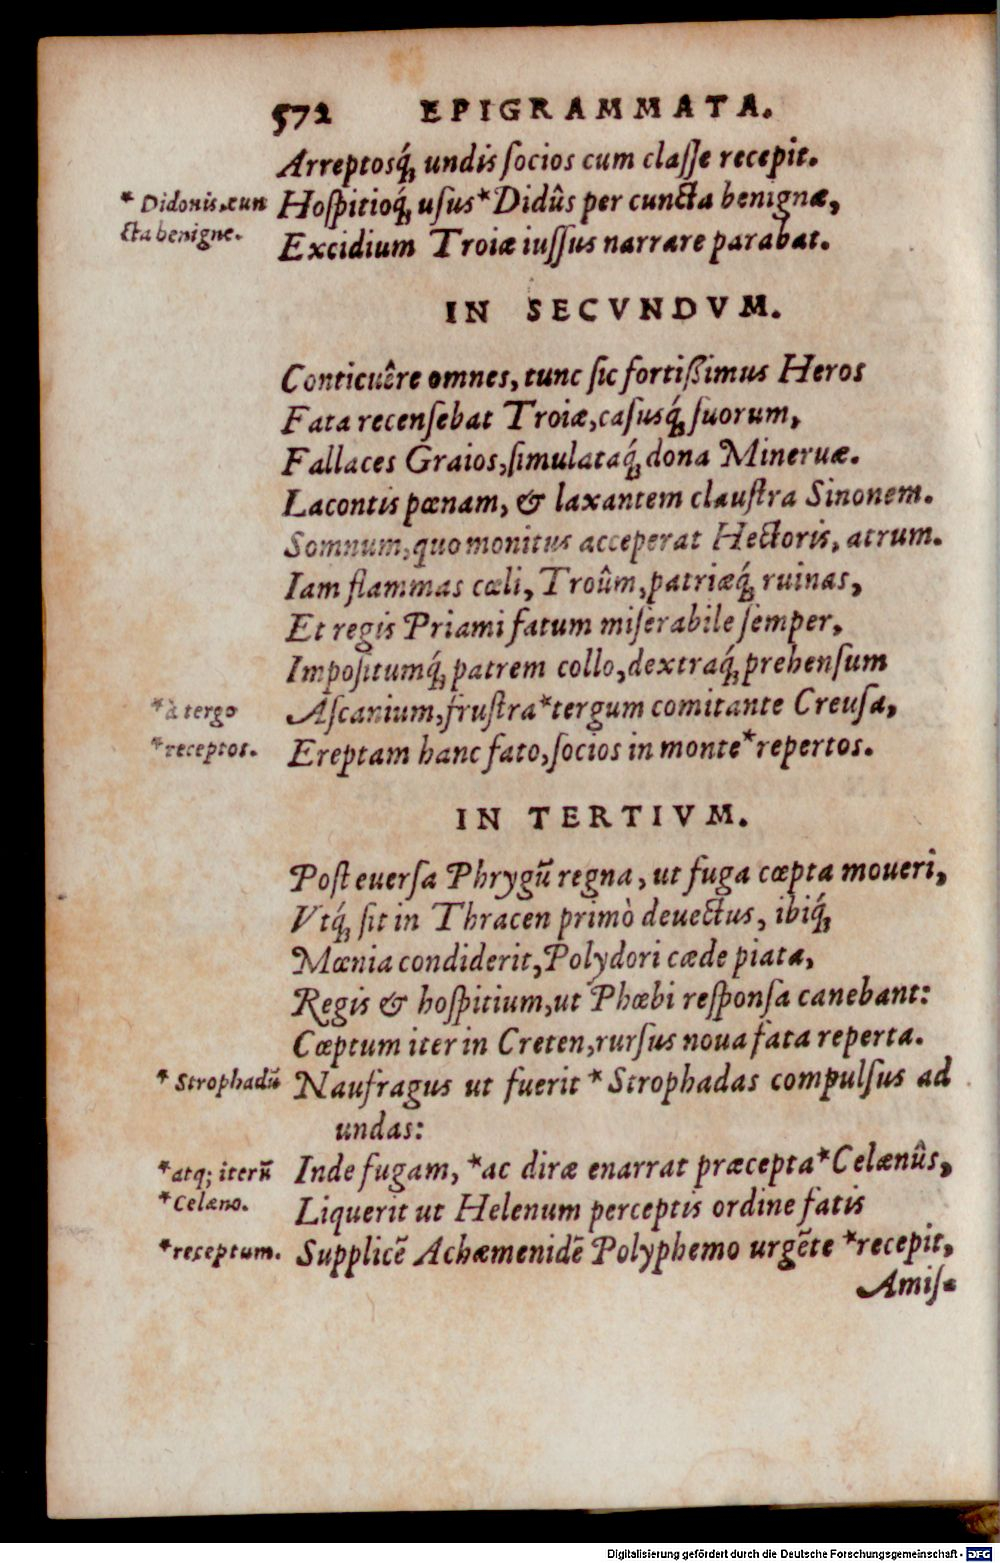 572 EPIGRAMMATA.
Arreptosq́ꝫ undis ſocios cum claſſe recepit.
* Didonis, cun
cta benigne.
Hoſpitioq́ꝫ uſus * Didûs per cuncta benignæ,
Excidium Troiæ iuſſus narrare parabat.
IN SECVNDVM.
Conticuêre omnes, tunc ſic fortißimus Heros
Fata recenſebat Troiæ, caſusq́ꝫ ſuorum,
Fallaces Graios, ſimulataq́ꝫ dona Mineruæ.
Lacontis pœnam, & laxantem clauſtra Sinonem.
Somnum, quo monitus acceperat Hectoris, atrum.
Iam flammas cœli, Troûm, patriæq́ꝫ ruinas,
Et regis Priami fatum miſerabile ſemper,
Impoſitumq́ꝫ patrem collo, dextraq́ꝫ prehenſum
* à tergo
Aſcanium, fruſtra * tergum comitante Creuſa,
* receptos.
Ereptam hanc fato, ſocios in monte * repertos.
IN TERTIVM.
Poſt euerſa Phrygū regna, ut fuga cœpta moueri,
Vtq́ꝫ ſit in Thracen primò deuectus, ibiq́ꝫ
Mœnia condiderit, Polydori cæde piata,
Regis & hoſpitium, ut Phœbi reſponſa canebant:
Cœptum iter in Creten, rurſus noua fata reperta.
* Strophadū
Naufragus ut fuerit * Strophadas compulſus ad
undas:
* atq; iterū
Inde fugam, * ac diræ enarrat præcepta * Celænûs,
* Celæno.
Liquerit ut Helenum perceptis ordine fatis
* receptum.
Supplicē Achæmenidē Polyphemo urgēte * recepit,
Amiſ-
Digitalisierung gefördert durch die Deutsche Forschungsgemeinschaft - DFG